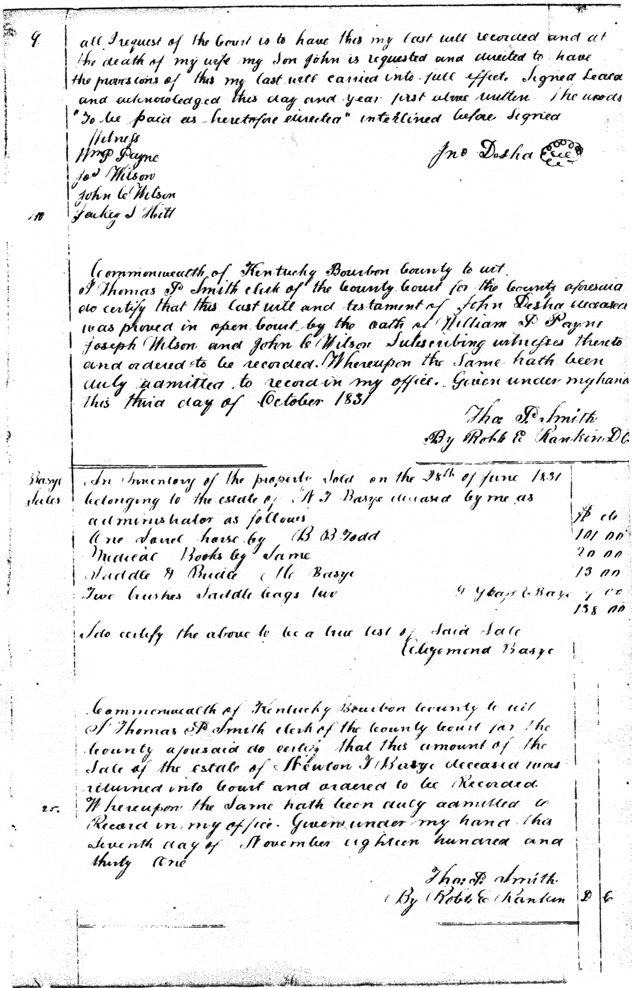 9. all I request of the Court is to have this my last will recorded and at
the death of my wife my Son John is requested and directed to have
the provisions of this my last will carried into full effect. Signed Sealed
and acknowledged this day and year first above written The words
"To be paid as heretofore directed" interlined before signed
Witness
Wm P Payne
Jos Wilson
John C Wilson
Jno Desha
Commonwealth of Kentucky Bourbon County to wit
I Thomas P Smith clerk of the County Court for the County aforesaid
do certify that this last will and testament of John Desha deceased
was proved in open Court by the oath of William P Payne
Joseph Wilson and John C Wilson Subscribing witnesses thereto
and ordered to be recorded. Whereupon the Same hath been
duly admitted to record in my office. Given under my hand
this third day of October 1831
Thos P Smith
By Robt E Rankin D C
Basye
Sales
An Inventory of the property Sold on the 28th of June 1831
belonging to the estate of N T Basye deceased by me as
administrator as follows $ cts
One Sorrel horse by B B Todd 101 00
Medical Books by Same 20 00
Saddle & Bridle Basye 13 00
Two brushes Saddle bags two Basye 00
138 00
I do certify the above to be a true list of Said Sale
Basye
Commonwealth of Kentucky Bourbon County to wit
I Thomas P Smith clerk of the County Court for the
County aforesaid do certify that this amount of the
Sale of the estate of Newton T Basye deceased was
returned into Court and ordered to be Recorded
25. Whereupon the Same hath been duly admitted to
Record in my office. Given under my hand this
Seventh day of November eighteen hundred and
thirty One
Thos P Smith
By Robt E Rankin D C